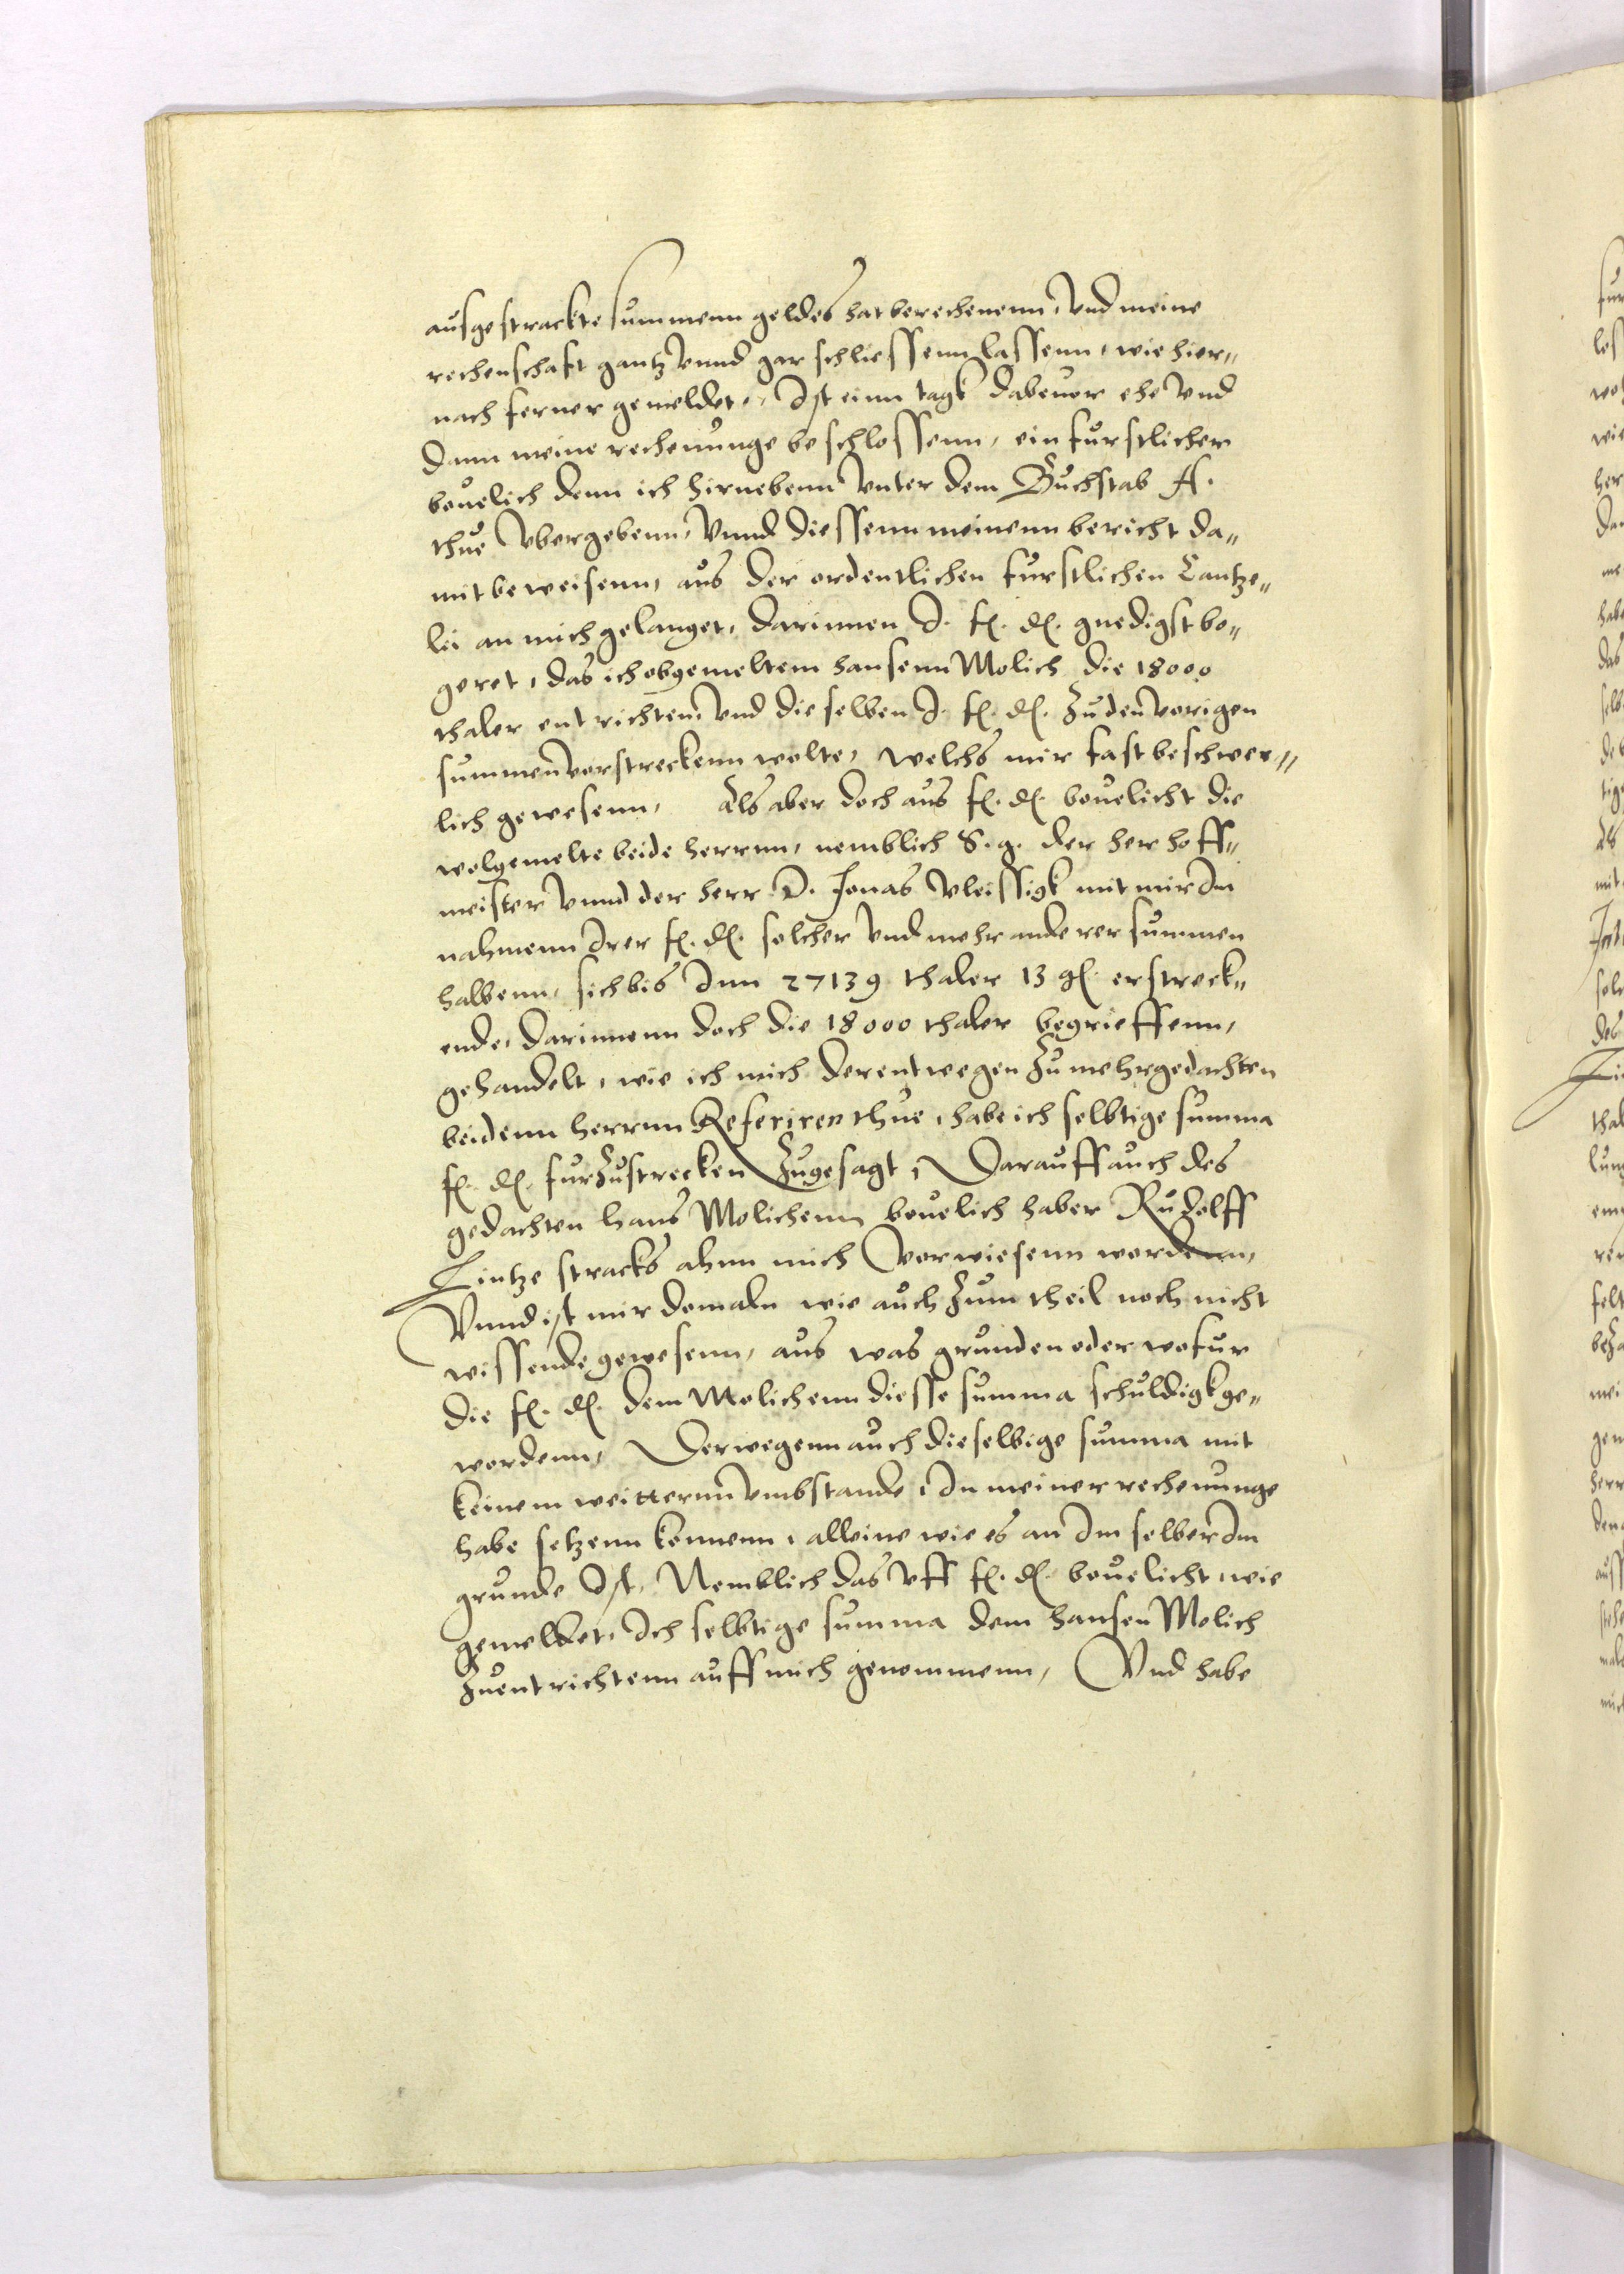 ausgestrackte summenn geldes hat berechenenn, vnd meine
rechenschaft gantz vnnd gar schliessenn lassenn, wie hier„
nach ferner gemeldet, Ist einn tagk dabeuor ehe vnd
dann meine rechenunge beschlossenn, ein furstlicher
beuelich denn ich hirnebenn vnter dem Buchstab A.
thue vbergebenn, vnnd diessenn meinenn bericht da„
mit beweisenn, aus der ordentlichen furstlichen Cantze„
lei an mich gelanget, darinnen I. f. d. gnedigst be„
geret, das ich obgemeltem hansenn Molich die 18000
thaler entrichten, vnd dieselben I. f. d. zu den vorigen
summen vorstreckenn wolte, welchs mir fast beschwer„
lich gewesenn, Als aber doch aus f. d. beuelicht die
wolgemelte beide herrnn, nemblich S. g. der her hoff„
meister vnnd der herr D. Jonas vleissigk mit mir Im
nahmenn Irer f. d. solcher vnd mehr anderer summen
halbenn, sich bis Inn 27139 thaler 13 gl. erstreck„
ende, darinnenn doch die 18000 thaler begrieffenn,
gehandelt, wie ich mich derentwegen zu mehrgedachten
beidenn herrnn Referiren thue, habe ich selbtige summa
f. d. furzustrecken zugesagt, Darauff auch des
gedachten hans Molichenn beuelich haber Rudolff
Lintze stracks ahnn mich vorwiesenn wordenn,
Vnnd ist mir domaln wie auch zum theil noch nicht
wissende gewesenn, aus was grunden oder wofur
die f. d. dem Molichenn diesse summa schuldigk ge„
wordenn, Derwegenn auch dieselbige summa mit
keinem weitternn vmbstande, In meiner rechenunge
habe setzenn konnenn, alleine wie es an Im selber Im
grunde Ist, Nemblich das vff f. d. beuelicht, wie
gemeldet, Ich selbtige summa dem hansen Molich
zuentrichtenn auff mich genommenn, Vnd habe